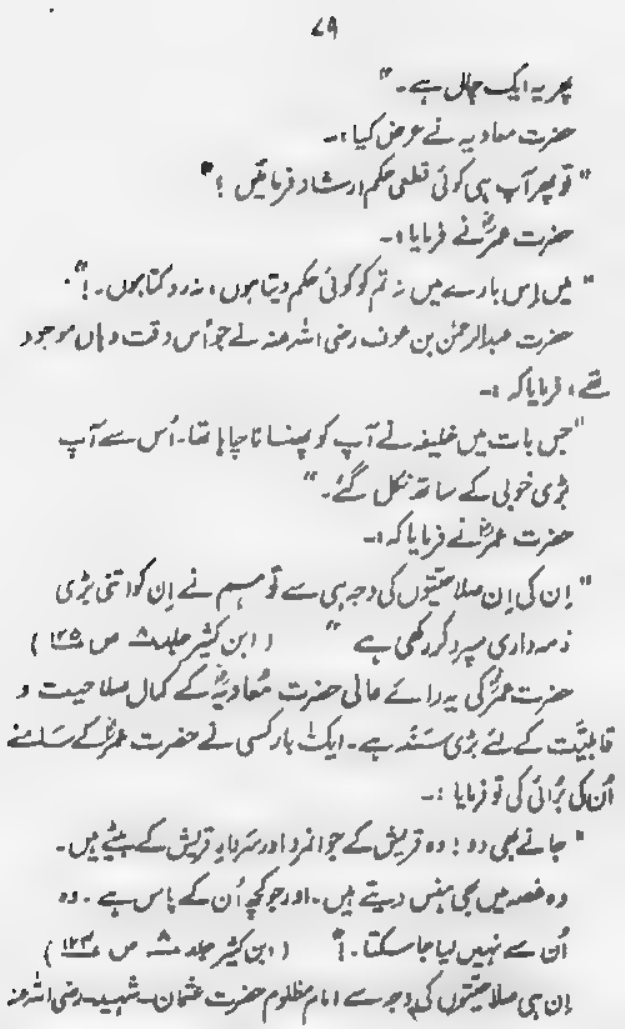 ۷۹
پھر یہ ایک چال ہے۔"
حضرت معاویہ نے عرض کیا:۔
"تو پھر آپ ہی کوئی قطعی حکم ارشاد فرمائیں!"
حضرت عمرؓ نے فرمایا:۔
"میں اِس بارے میں نہ تم کو کوئی حکم دیتا ہوں، نہ روکتا ہوں۔!"
حضرت عبدالرحمٰن بن عوف رضی اللہ عنہ نے جو اُس وقت وہاں موجود
تھے، فرمایا کہ:۔
"جس بات میں خلیفہ نے آپ کو پھنسانا چاہا تھا۔ اُس سے آپ
بڑی خوبی کے ساتھ نکل گئے۔"
حضرت عمرؓ نے فرمایا کہ:۔
"اِن کی اِن صلاحیتوں کی وجہ ہی سے تو ہم نے اِن کو اتنی بڑی
ذمہ داری سپرد کر رکھی ہے" (ابن کثیر جلد ۸ ص ۱۲۵)
حضرت عمرؓ کی یہ رائے عالی حضرت مُعاویہؓ کے کمال صلاحیت و
قابلیّت کے لئے بڑی سَنَد ہے۔ ایک بار کسی نے حضرت عمرؓ کے سَامنے
اُن کی بُرائی کی تو فرمایا:۔
"جانے بھی دو! وہ قریش کے جوانمرد اور سَردارِ قریش کے بیٹے ہیں۔
وہ غصہ میں بھی ہنس دیتے ہیں۔ اور جو کچھ اُن کے پاس ہے۔ وہ
اُن سے نہیں لیا جا سکتا۔!" (ابن کثیر جلد ۸ ص ۱۲۴)
اِن ہی صلاحیّتوں کی وجہ سے امام مظلوم حضرت عثمان۔ شہید۔ رضی اللہ عنہ